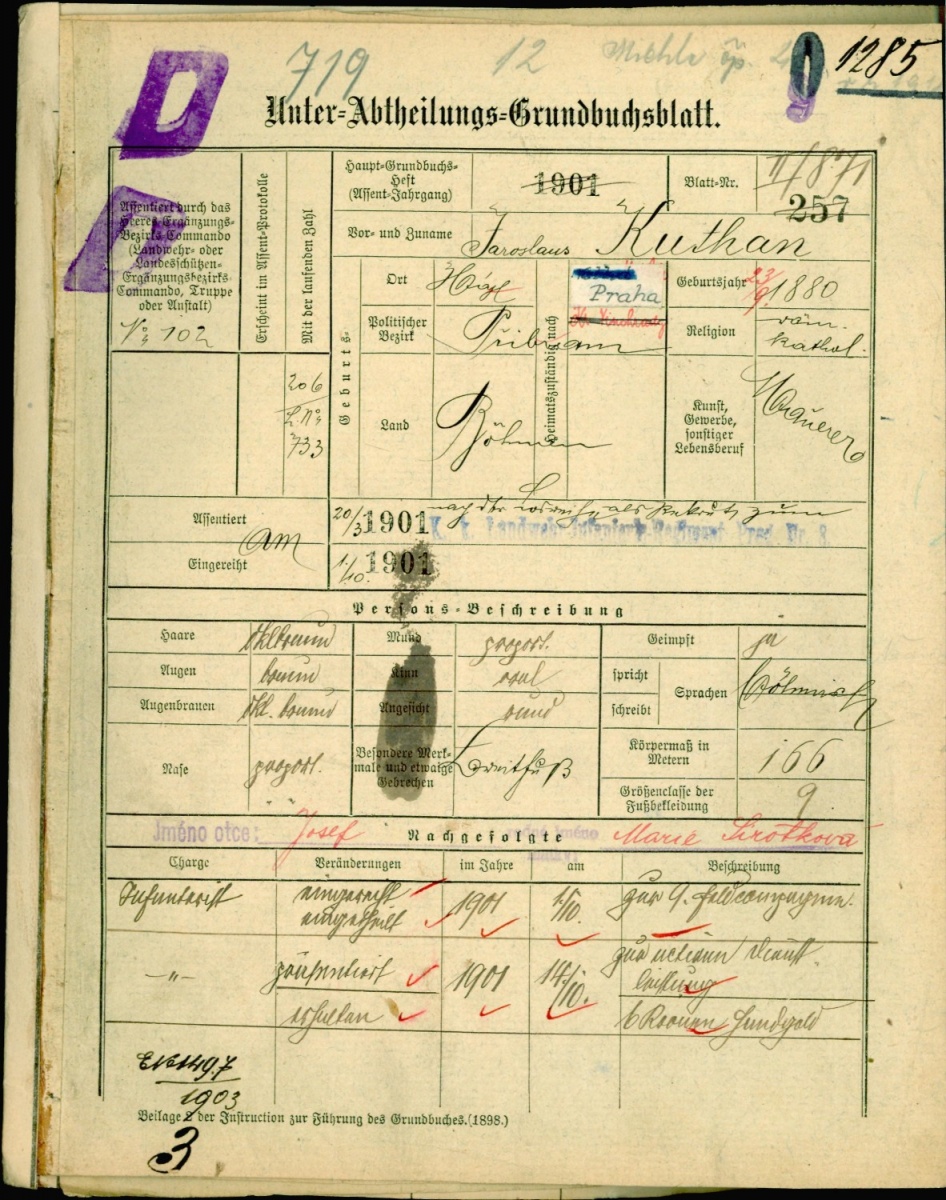 D
719
12
Michle
1285
Unter-Abtheilungs-Grundbuchsblatt.
D
Assentiert durch das
Heeres-Ergänzungs-
Bezirks-Commando
(Landwehr- oder
Landesschützen-
Ergänzungsbezirks-
Commando, Truppe
oder Anstalt)
№ 102
Erscheint im Assent-Protokolle
Mit der laufenden Zahl
206
L. №
733
Haupt-Grundbuchs-
Heft
(Assent-Jahrgang)
1901
Blatt-Nr.
257
Vor- und Zuname
Jaroslaus Kuthan
Geburts-
Ort
Politischer
Bezirk
Přibram
Land
Böhmen
Heimatszuständig nach
Praha
Geburtsjahr
23/9 1880
Religion
röm.
kathol.
Kunst,
Gewerbe,
sonstiger
Lebensberuf
Maurer
Assentiert
am
Eingereiht
20/3 1901 nach der Losreihe als Rekrut zum
K. k. Landwehr-Infanterie-Regiment Prag Nr. 8
1/10. 1901
Persons-Beschreibung
Haare
dklbraun
Mund
proport.
Geimpft
ja
Augen
braun
Kinn
oval
spricht
schreibt
Sprachen
Böhmisch
Augenbrauen
dkl. braun
Angesicht
rund
Nase
proport.
Besondere Merk-
male und etwaige
Gebrechen
Breitfuß
Körpermaß in
Metern
166
Größenclasse der
Fußbekleidung
9
Jméno otce: Josef
Nachgefolgte
Marie Sirotková
Charge
Veränderungen
im Jahre
am
Beschreibung
Infanterist
eingereiht
eingetheilt
1901
1/10.
zur 9. Feldcompagnie.
-〃-
präsentiert
1901
14/10.
zur activen Dienst
leistung
erhalten
6 Kronen Handgeld
1497
1903
Beilage 2 der Instruction zur Führung des Grundbuches. (1898.)
3